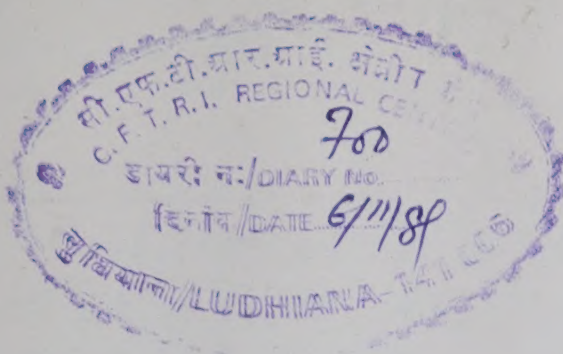 सी.एफ.टी.आर.आई. क्षेत्रीय
C. F. T. R. I. REGIONAL CENTRE
700
डायरी नं:/DIARY NO.
दिनांक/DATE 6/11/89
लुधियाना/LUDHIANA-141